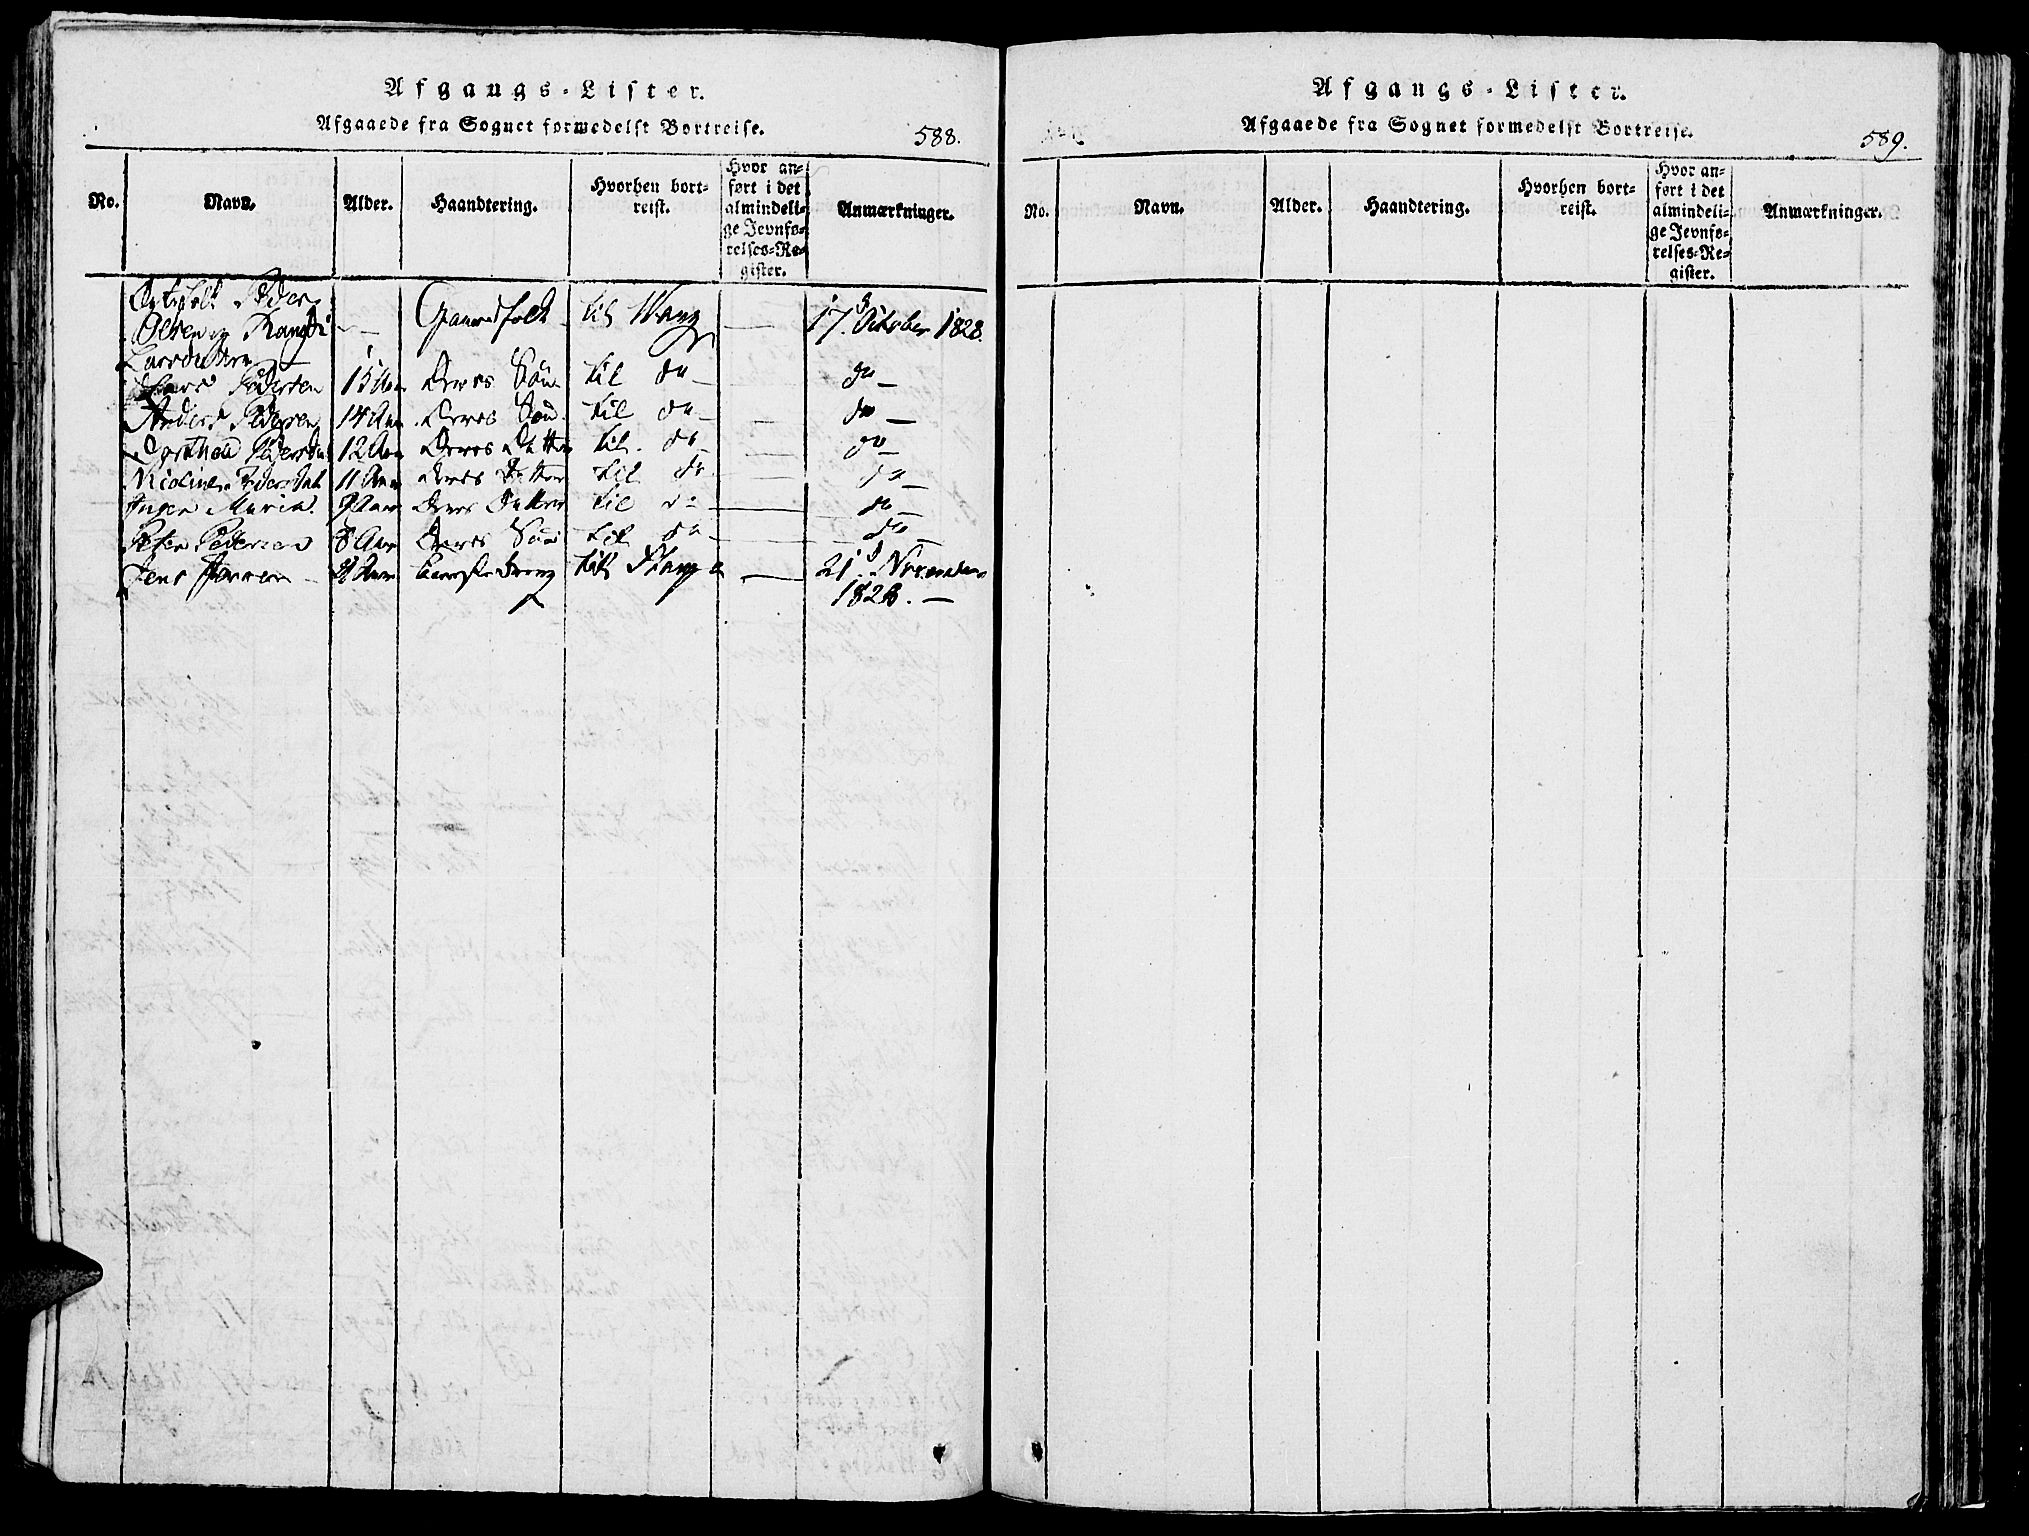 Afgangs-Lister.
Afgaaede fra Sognet formedelst Bortreise.
588.
No. Navn. Alder. Haandtering. Hvorhen bortreist. Hvor anført i det almindelige Jevnførelses-Register. Anmærkninger.
Peder
Olsen og
Larsdatter — til Wang — 17d October 1828.
Lars Pedersen 15 Aar Deres Søn til do — do —
Anders Pedersen 14 Aar Deres Søn til do — do —
Dorthea Pedersdtr 12 Aar Deres Datter til do — do —
Pedersdat 11 Aar Deres Datter til do — do —
Inger Maria. 9 Aar Deres Datter til do — do —
Peder Pedersen 8 Aar Deres Søn til do — do —
Jens Jensen — Aar til Stange — 21d November
1828. —
Afgangs-Lister.
Afgaaede fra Sognet formedelst Bortreise.
589.
No. Navn. Alder. Haandtering. Hvorhen bortreist. Hvor anført i det almindelige Jevnførelses-Register. Anmærkninger.